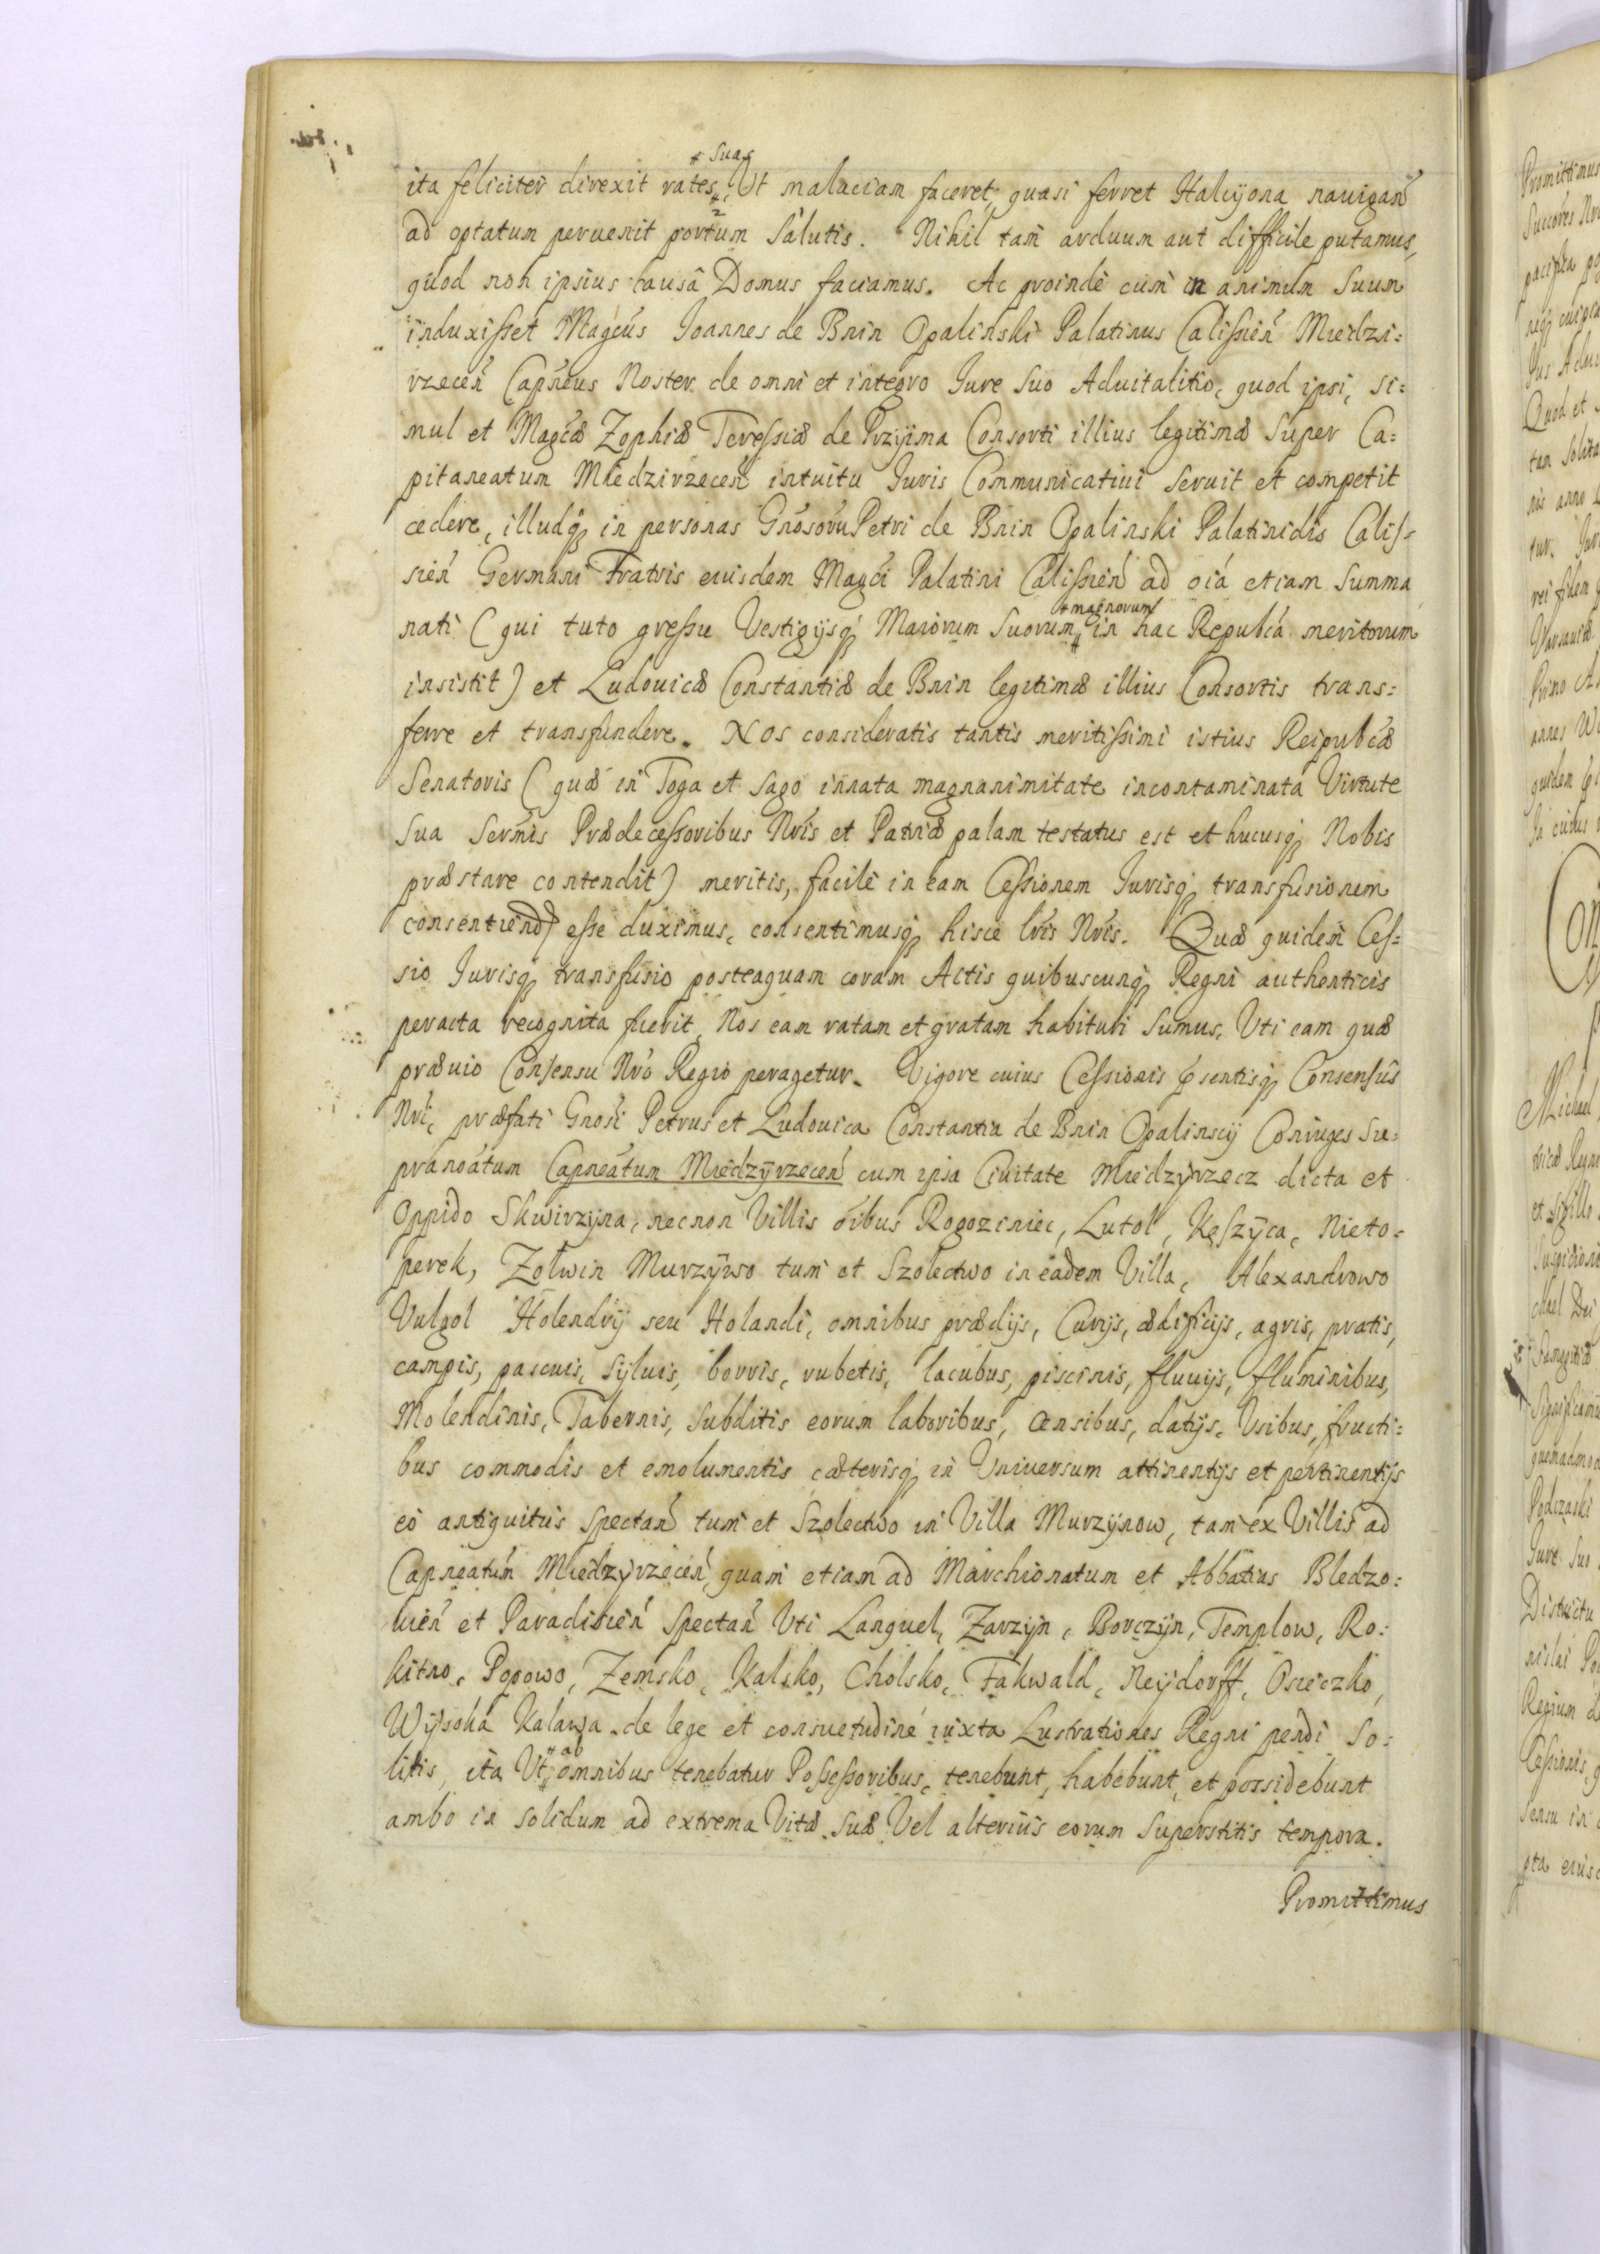 ita feliciter direxit rates suas, Ut malaciam faceret, quasi ferret Halcyona nauigan̄
ad optatum peruenit portum Salutis. Nihil tam arduum aut difficile putamus,
quod non ipsius causâ Domus faciamus. Ac proindè cum in animum Suum
induxisset Magcūs Joannes de Bnin Opalinski Palatinus Calissien̄ Miedzi:
rzecen̄ Capn̄eus Noster de omni et integro Jure Suo Aduitalitio, quod ipsi, si:
mul et Magcæ Zophiæ Teressiæ de Przyima Consorti illius legitimæ Super Ca:
pitaneatum Miedzirzecen̄ intuitu Juris Communicatiui seruit et competit
cedere, illudq₃ in personas Gn̄osorū Petri de Bnin Opalinski Palatinidis Calis:
sien̄ Germani Fratris eiusdem Magci Palatini Calissien̄ ad oia etiam Summa
nati (qui tuto gressu Vestigijsq₃ Maiorum Suorum magnorum in hac Repubca meritorum
insistit) et Ludouicæ Constantiæ de Bnin legitimæ illius Consortis trans:
ferre et transfundere. NOS consideratis tantis meritissimi istius Reipubcæ
Senatoris (quæ in Toga et Sago innata magnanimitate incontaminatá Virtute
Sua Sermis Prædecessoribus Nris et Patriæ palam testatus est et hucusq₃ Nobis
præstare contendit) meritis, facilè in eam Cessionem Jurisq₃ transfusionem
consentiend esse duximus, consentimusq₃ hisce lris Nris. Quæ quidem Ces:
sio Jurisq₃ transfusio posteaquam coram Actis quibuscunq₃ Regni authenticis
peracta recognita fuerit, Nos eam ratam et gratam habituri Sumus, Uti eam quæ
præuio Consensu Nro Regio peragetur. Vigore cuius Cessionis p̄sentisq₃ Consensûs
Nri, præfati Gnosi Petrus et Ludouica Constantia de Bnin Opalinscij Coniuges Su:
pranoátum Capneátum Miedzyrzecen̄ cum ipsa Ciuitate Miedzyrzecz dicta et
Oppido Skwirzyna, necnon Villis óibus Rogoziniec, Lutol, Kęszyca, Nieto:
perek, Zolwin Murzÿwo tum et Szolectwo in eadem Villa, Alexandrowo
Vulgol Holendry seu Holandi, omnibus prædijs, Curijs, ædificijs, agris, pratis,
campis, pascuis, Syluis, borris, rubetis, lacubus, piscinis, fluuijs, fluminibus,
Molendinis, Tabernis, Subditis eorum laboribus, censibus, datijs, Usibus, fructi:
bus commodis et emolumentis cæterisq₃ in Uniuersum attinentijs et pertinentijs
eò antiquitùs Spectan̄ tum et Szolectwo in Villa Murzynow, tam ex Villis ad
Capneatum Miedzyrzecen̄ quam etiam ad Marchionatum et Abbatius Bledzo:
uien̄ et Paradisien̄ Spectan̄ Uti Languel, Zarzyn, Borczyn, Templow, Ro:
kitno, Popowo, Zemsko, Kalsko, Cholsko, Fakwald, Neydorff, Osieczko,
Wysoka Kalawa de lege et consuetudiné iuxta Lustrationes Regni pendi So:
litis, ita Ut ab omnibus tenebatur Possessoribus, tenebunt, habebunt, et possidebunt
ambo in solidum ad extrema Vitæ Suæ Vel alteriùs eorum Superstitis tempora.
Promittimus